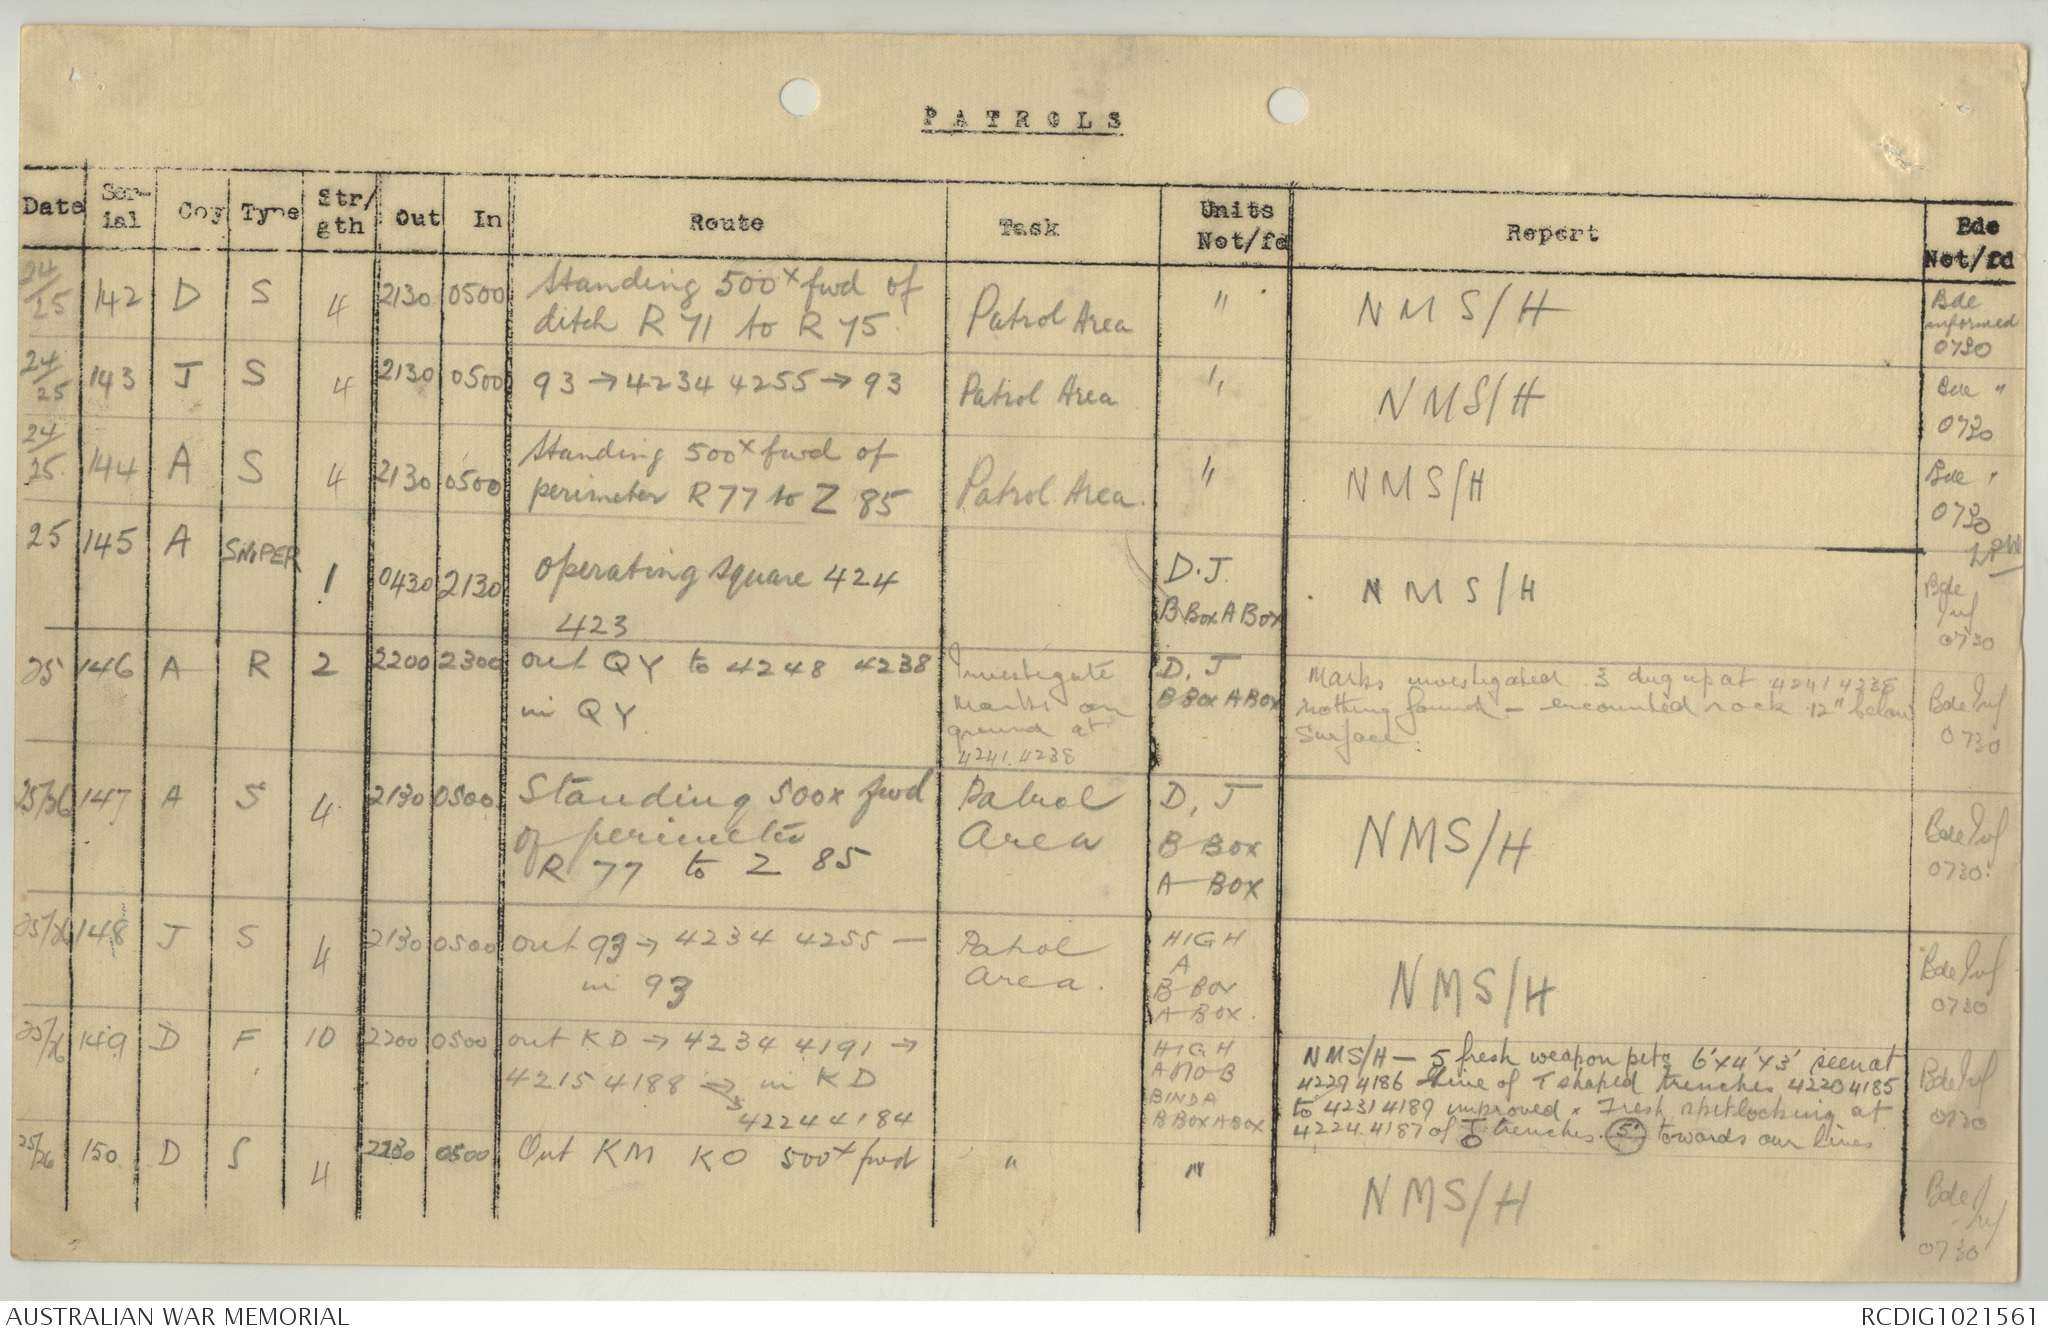 PATROLS
Date Ser-ial Coy Type Str/gth Out In Route Task Units Not/fd Report Bde Not/fd
24/25 142 D S 4 2130 0500 Standing 500x fwd of Patrol Area " NMS/H Bde informed 0730
ditch R 71 to R 75.
24/25 143 J S 4 2130 0500 93 → 4234 4255 → 93 Patrol Area " NMS/H Bde " 0730
24/25 144 A S 4 2130 0500 Standing 500x fwd of Patrol Area. " NMS/H Bde " 0730
perimeter R 77 to Z 85
25 145 A SNIPER 1 0430 2130 operating square 424 D.J. NMS/H Bde inf 0730
423 B Box A Box
25 146 A R 2 2200 2300 out QY to 4248 4238 Investigate D, J Marks investigated 3 dug up at 4241 4238 Bde Inf
in QY. Marks on B Box A Box nothing found - encounted rock 12" below 0730
ground at surface.
4241.4238
25/26 147 A S 4 2130 0500 Standing 500x fwd Patrol D, J NMS/H Bde Inf
of perimeter Area B Box 0730.
R 77 to Z 85 A Box
25/26 148 J S 4 2130 0500 out 93 → 4234 4255 — Patrol HIGH NMS/H Bde Inf
in 93 Area. A 0730
B Box
A Box.
25/26 149 D F 10 2200 0500 out KD → 4234 4191 → HIGH NMS/H — 5 fresh weapon pits 6'x4'x3' seen at Bde Inf
4215 4188 → in KD A MOB 4229 4186 line of T shaped trenches 4220 4185 0730
4224 4184 BINDA to 4231 4189 improved x Fresh spitlocking at
B Box A Box 4224.4187 of T trenches. 5' towards our lines
25/26 150 D S 4 2130 0500 Out KM KO 500x fwd " " NMS/H Bde Inf
0730
AUSTRALIAN WAR MEMORIAL RCDIG1021561